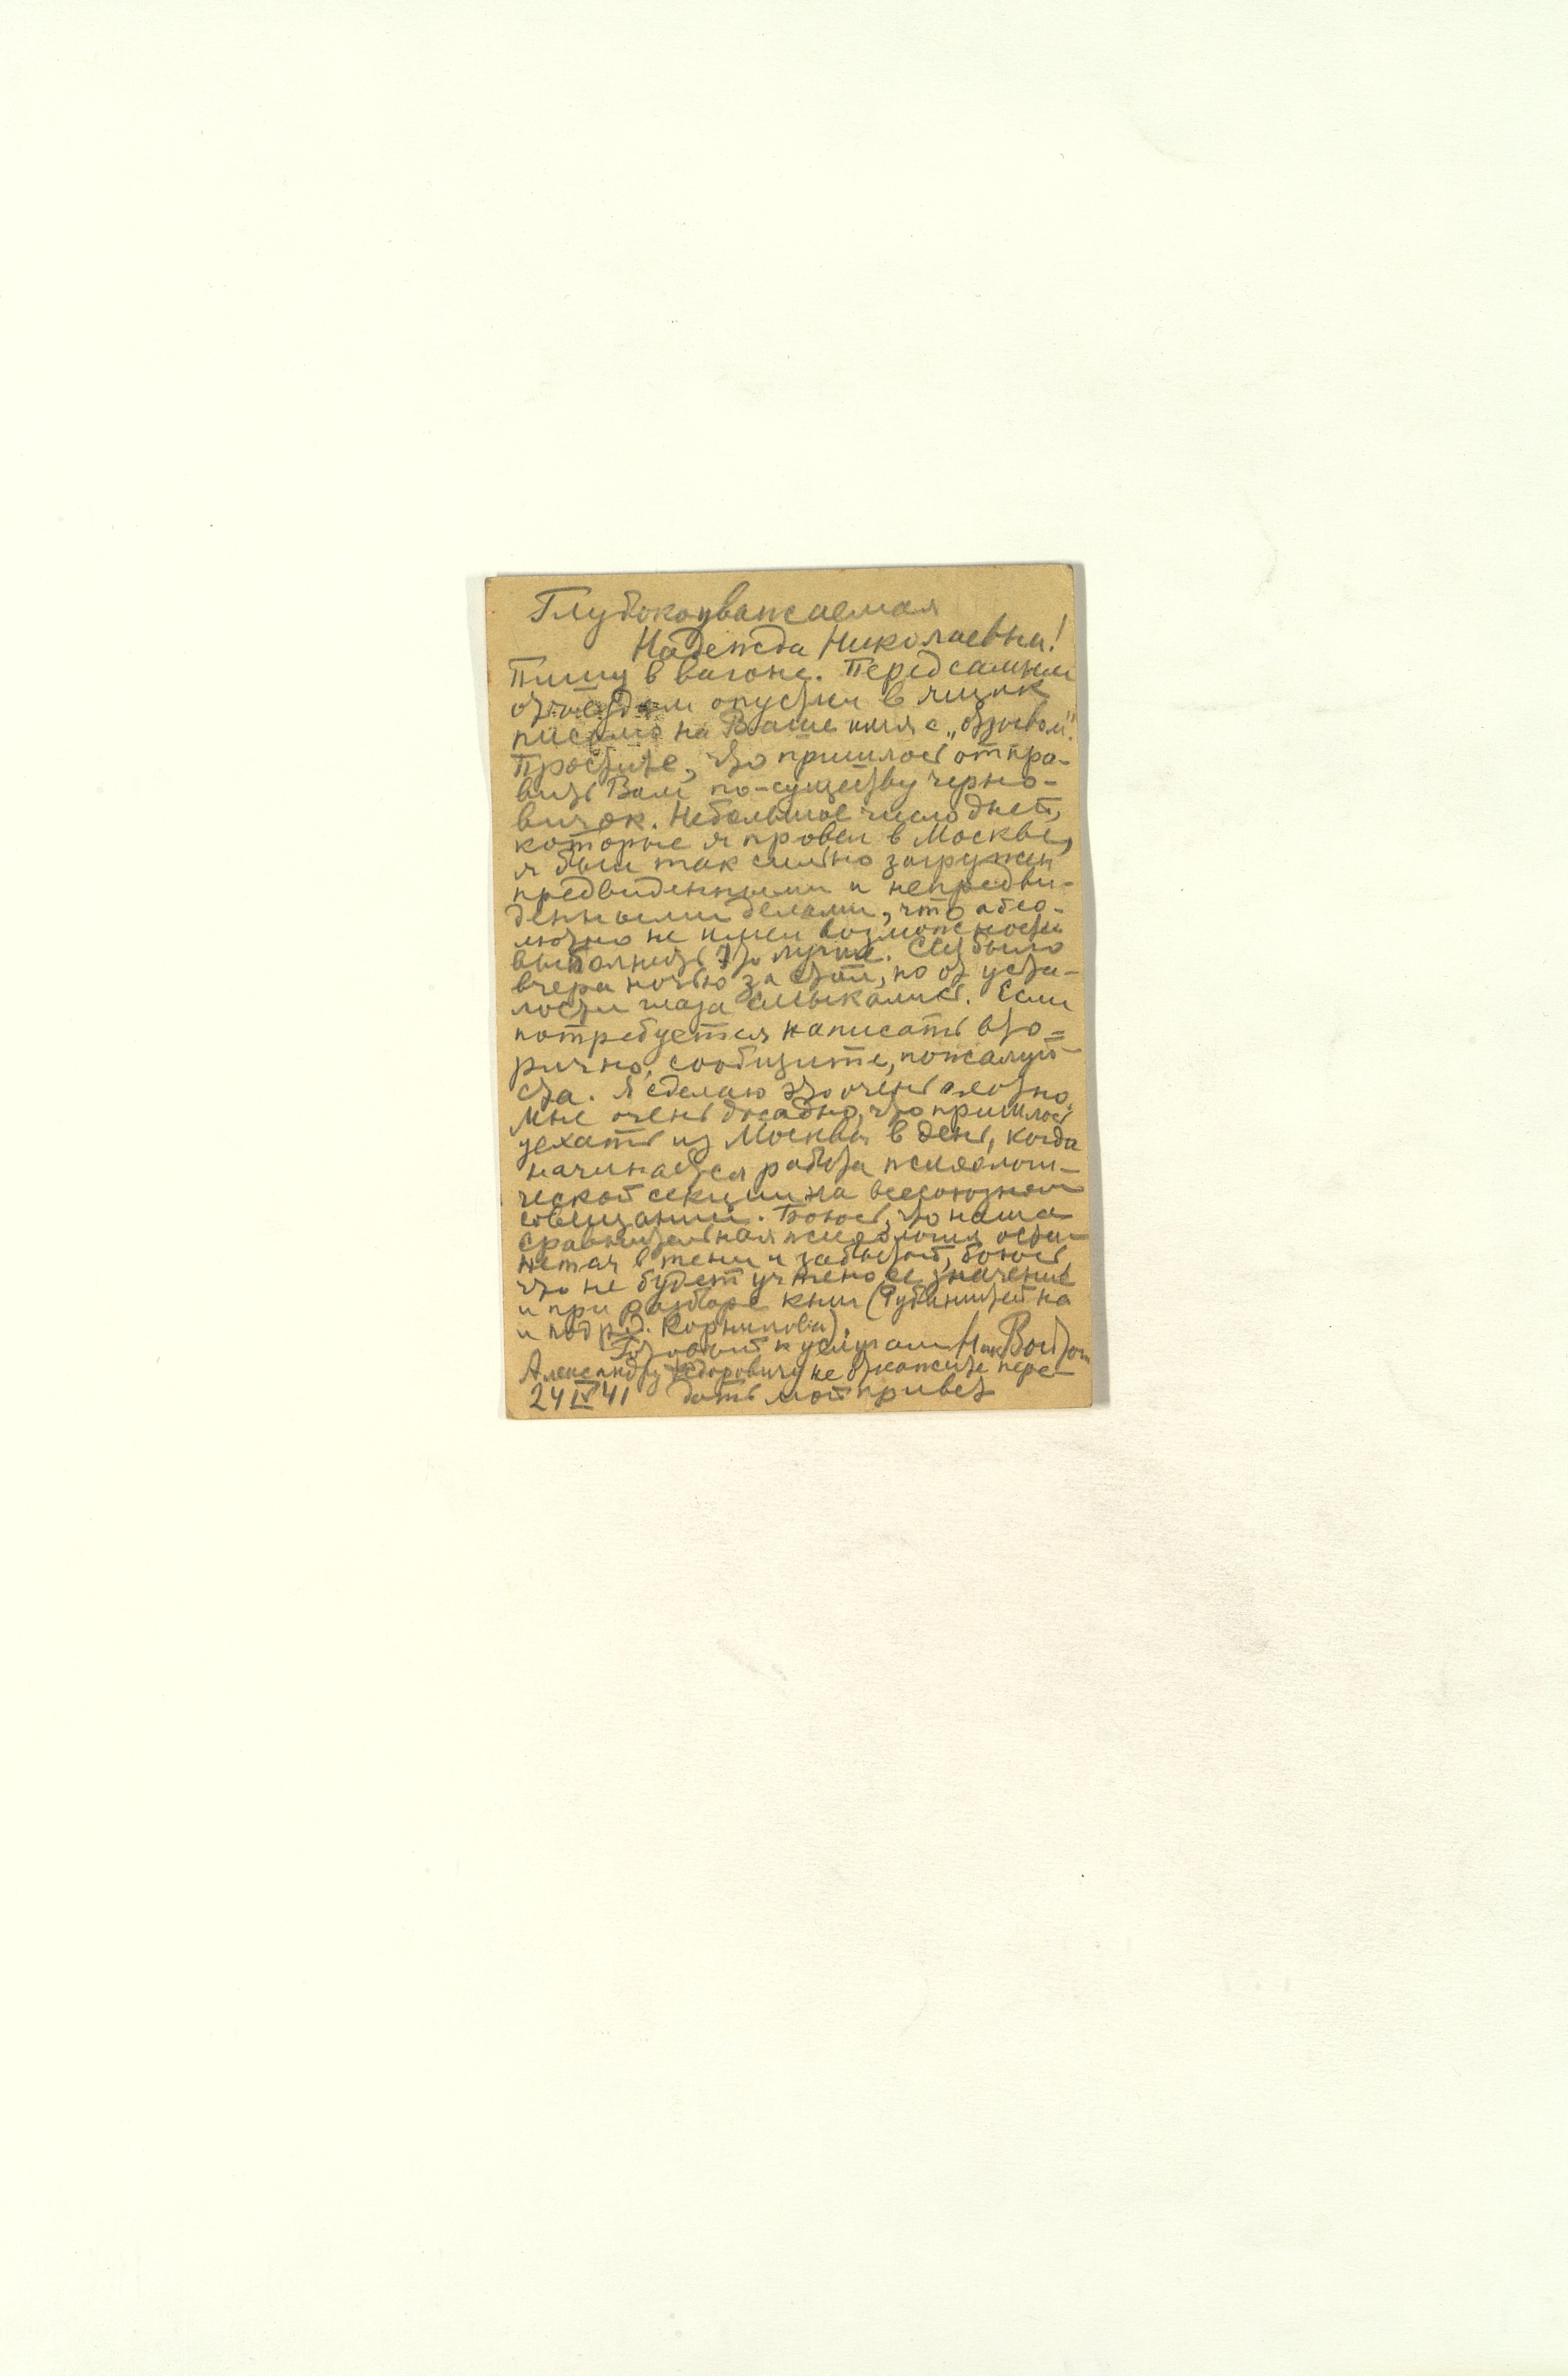 Глубокоуважаемая
Надежда Николаевна!
Пишу в вагоне. Перед самым
отъездом опустил в ящик
письмо на Ваше имя с „отзывом".
Простите, что пришлось отпра-
вить Вам по-существу черно-
вичок. Небольшое число дней,
которые я провел в Москве,
я был так сильно загружен
предвиденными и непредви-
денными делами, что абсо-
лютно не имел возможности
выполнить это лучше. Сел было
вчера ночью за стол, но от уста-
лости глаза смыкались. Если
потребуется написать вто=
рично, сообщите, пожалуй-
ста. Я сделаю это очень охотно.
Мне очень досадно, что пришлось
уехать из Москвы в день, когда
начинается работа психологи-
ческой секции на всесоюзном
совещании. Боюсь, что наша
сравнительная психология оста-
нется в тени и забытой, боюсь,
что не будет учтено ее значение
и при разборе книг (Рубинштейна
и под ред. Корнилова).
Готовый к услугам Ник Войтон
Александру Федоровичу не откажите пере-
24 IV 41 дать мой привет